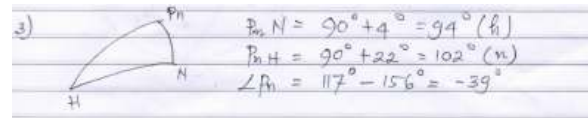 3)
Pn
N
H
Pn N = 90° + 4° = 94° (h)
Pn H = 90° + 22° = 102° (n)
∠Pn = 117° - 156° = -39°